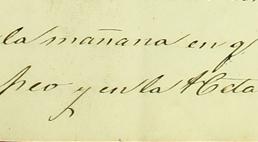 la mañana en q
peo y en la Heta